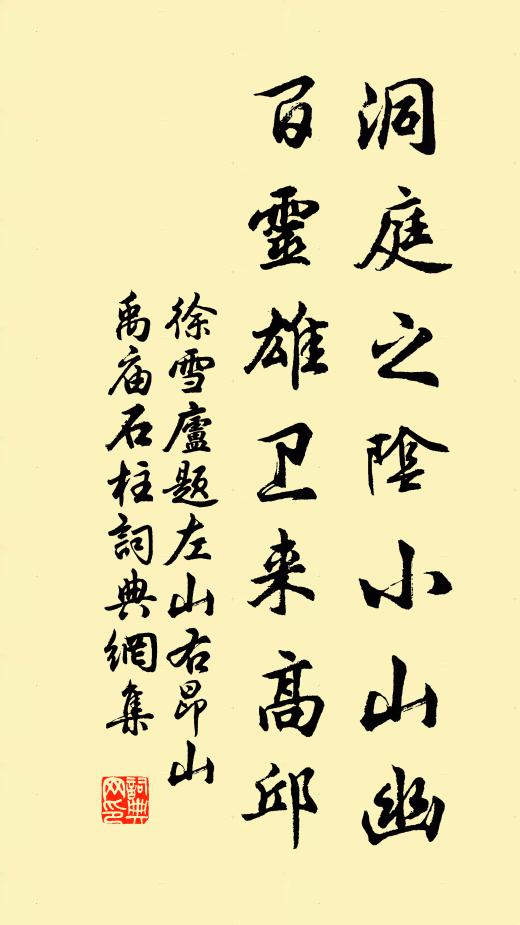 洞庭之陰小山幽
百靈雄卫来高邱
徐雪廬题左山右昂山
禹庙石柱詞典網集
詞典网印